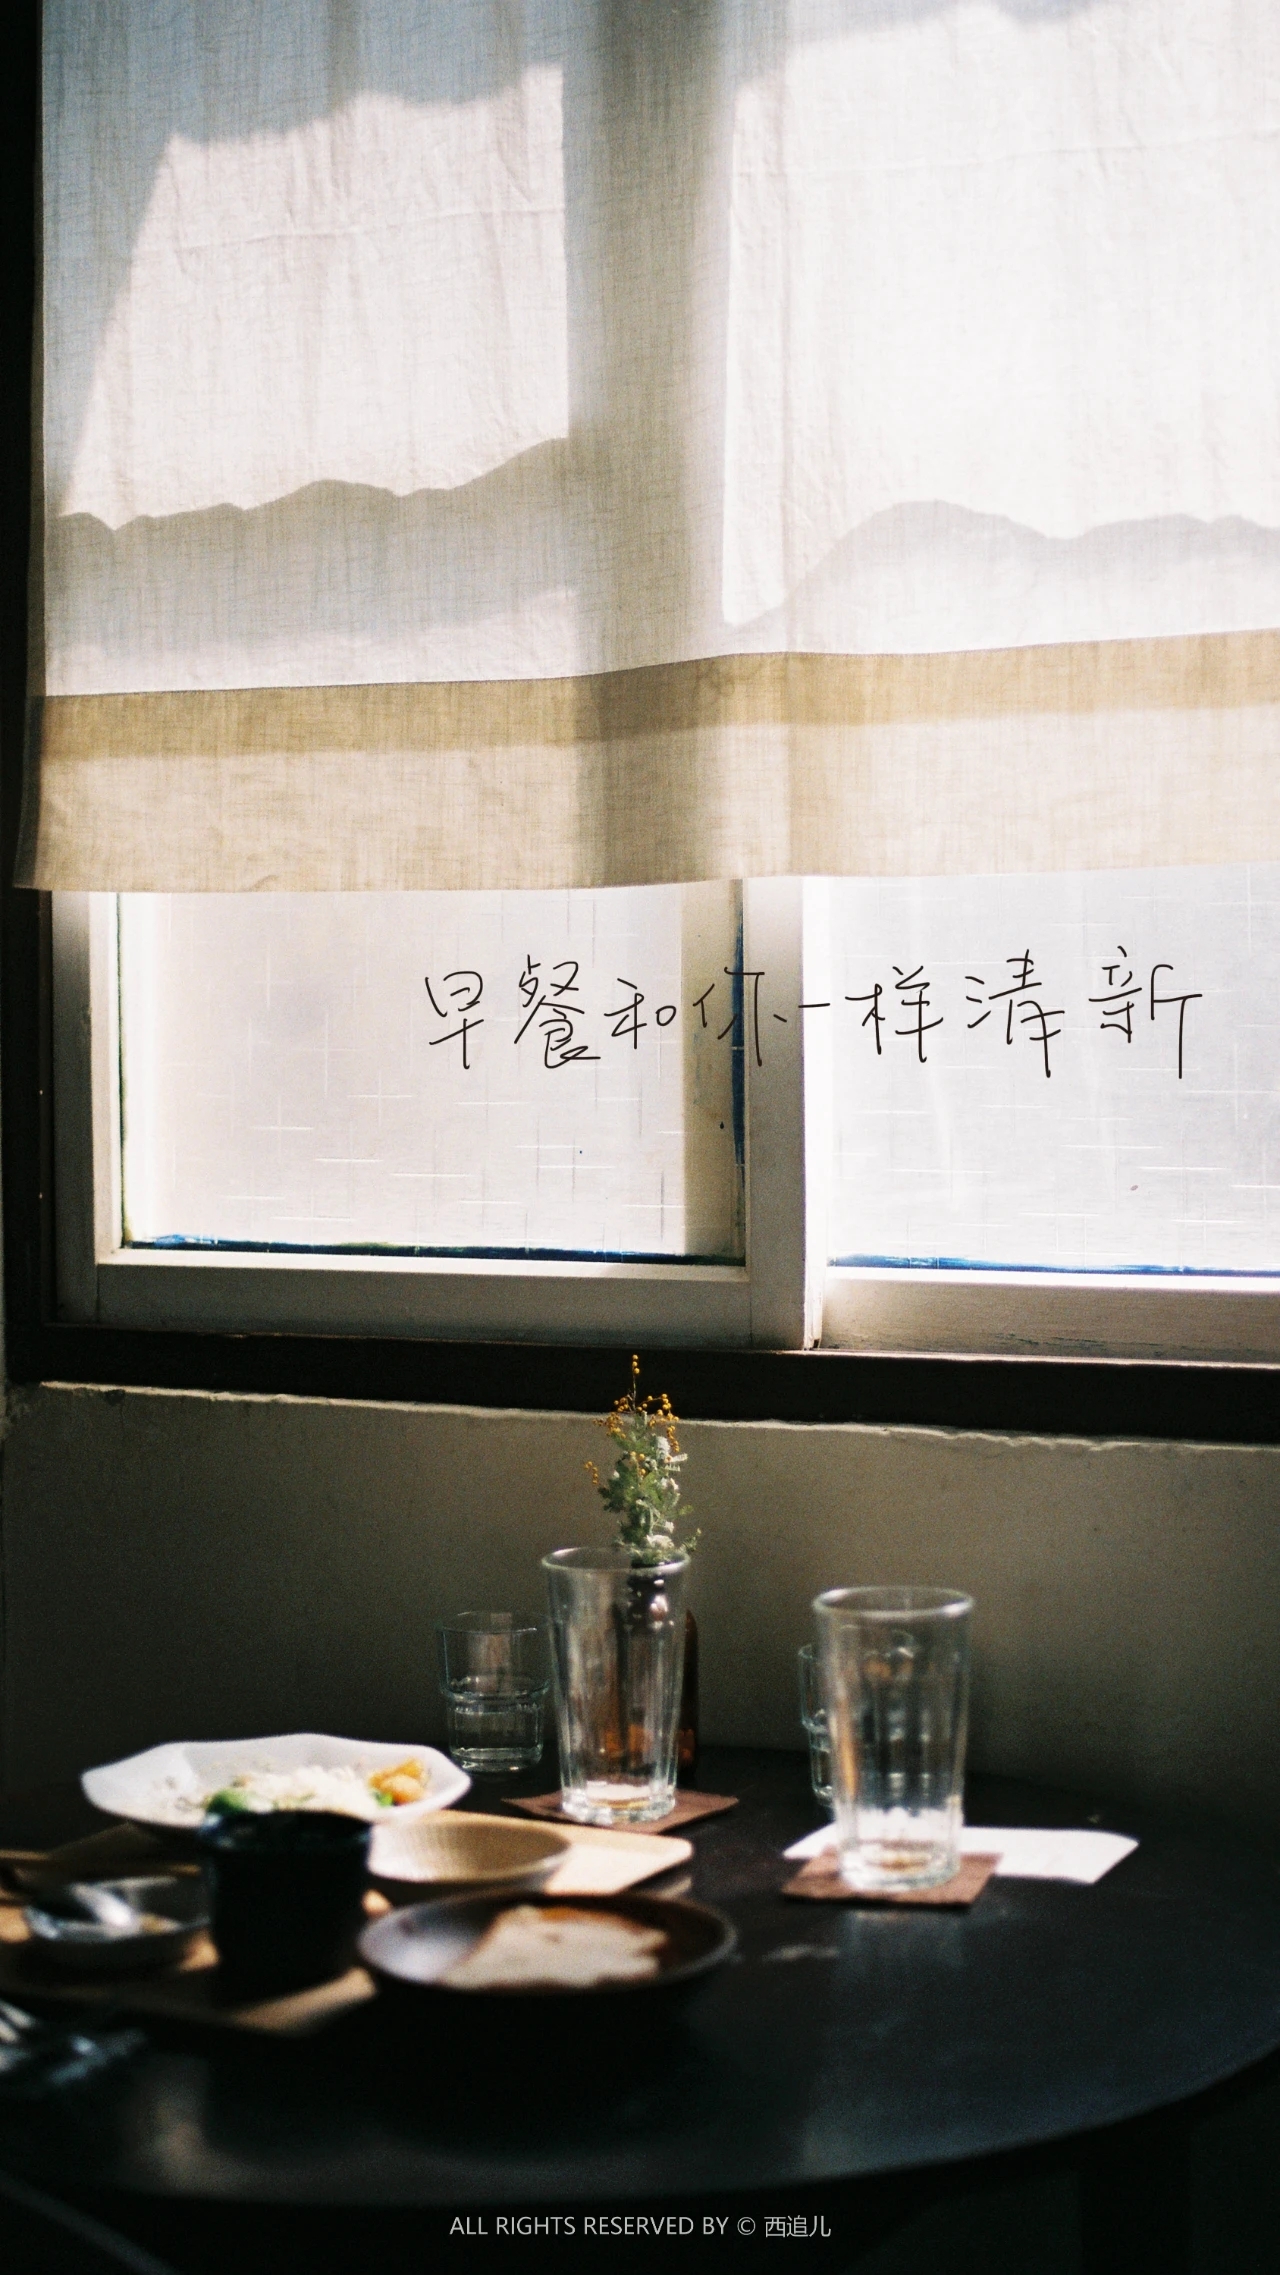 早餐和你一样清新
ALL RIGHTS RESERVED BY © 西追儿